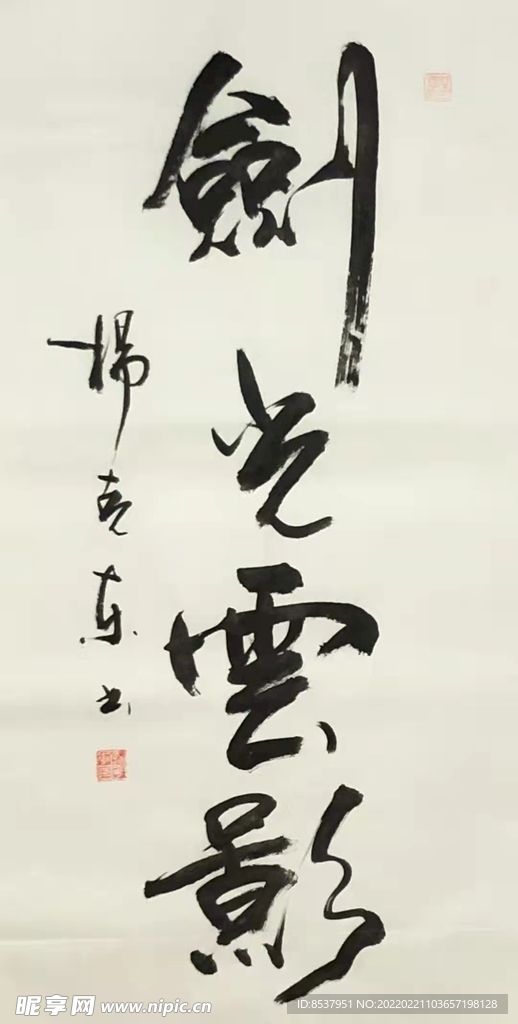 劍光雲影
楊克東书
昵享网 www.nipic.cn
ID:8537951 NO:20220221103657198128